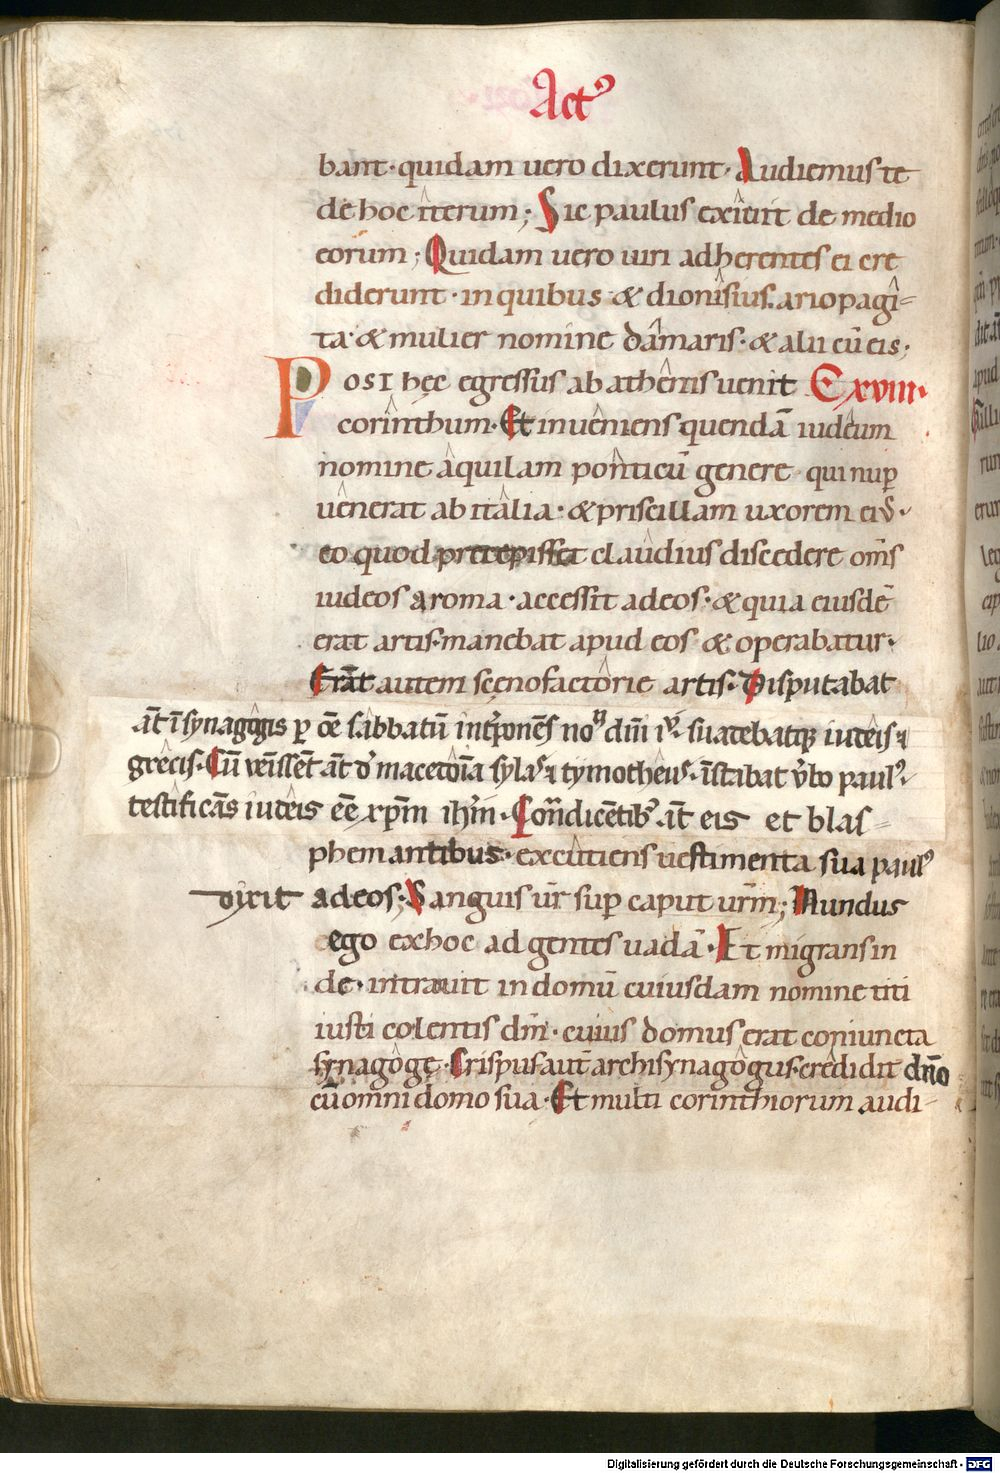 Actꝰ
bant· quidam uero dixerunt· Audiemus te
de hoc iterum; Sic paulus exiuit de medio
eorum; Quidam uero uiri adherentes ei cre
diderunt· in quibus & dionisius ariopagi-
ta· & mulier nomine damaris· & alii cū eis·
Post hęc egressus ab athenis uenit C xviii·
corinthum· Et inueniens quendā iudeum
nomine aquilam ponticū genere qui nuꝑ
uenerat ab italia· & priscillam uxorem eiꝰ·
eo quod claudius discedere om̄s
iudeos a roma· accessit ad eos· & quia eiusdē
erat artis· manebat apud eos & operabatur·
Erāt autem scęnofactorie artis· Disputabat
āt ī synagogis ꝑ oē sabbatū int̄ponēs dn̄i suadebatqꝫ iudeis ⁊
grecis· Cū ueniss̄et āt d macedōia sylas ⁊ tymotheus· īstabat ỽbo paulꝰ·
testificās iudeis eē xp̄m ih̄m· Cont̄dicētibꝰ āt eis et blas-
phemantibus· excutiens uestimenta sua paulꝰ
dixit ad eos; Sanguis ur̄ suꝑ caput urm̄; Mundus
ego ex hoc ad gentes uadā· Et migrans in
de· intrauit in domū cuiusdam nomine titi
iusti colentis dm̄· cuius domus erat coniuncta
synagogę· Crispus aut̄ archisynagogus credidit dn̄o
cū omni domo sua· Et multi corinthiorum audi-
Digitalisierung gefördert durch die Deutsche Forschungsgemeinschaft - DFG